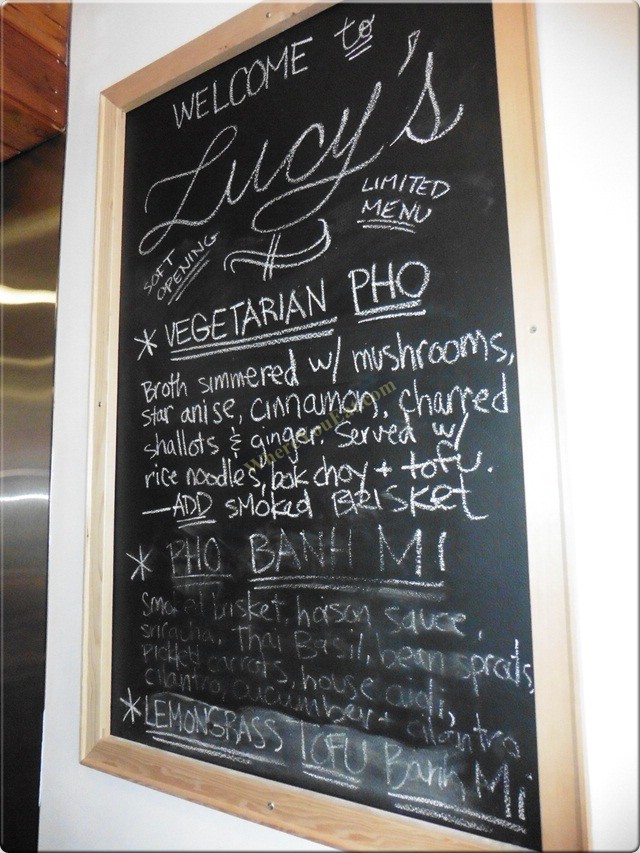 WELCOME to
Lucy's
LIMITED
MENU
SOFT
OPENING
* VEGETARIAN PHO
Broth simmered w/ mushrooms,
star anise, cinnamon, charred
shallots & ginger. Served w/
rice noodles, bok choy + tofu.
—ADD smoked BRISKET
* PHO BANH MI
Smoked brisket, hoison sauce,
sriracha, Thai Basil, bean sprouts,
carrots, house aioli,
cilantro, cucumber + cilantro
* LEMONGRASS TOFU Banh Mi